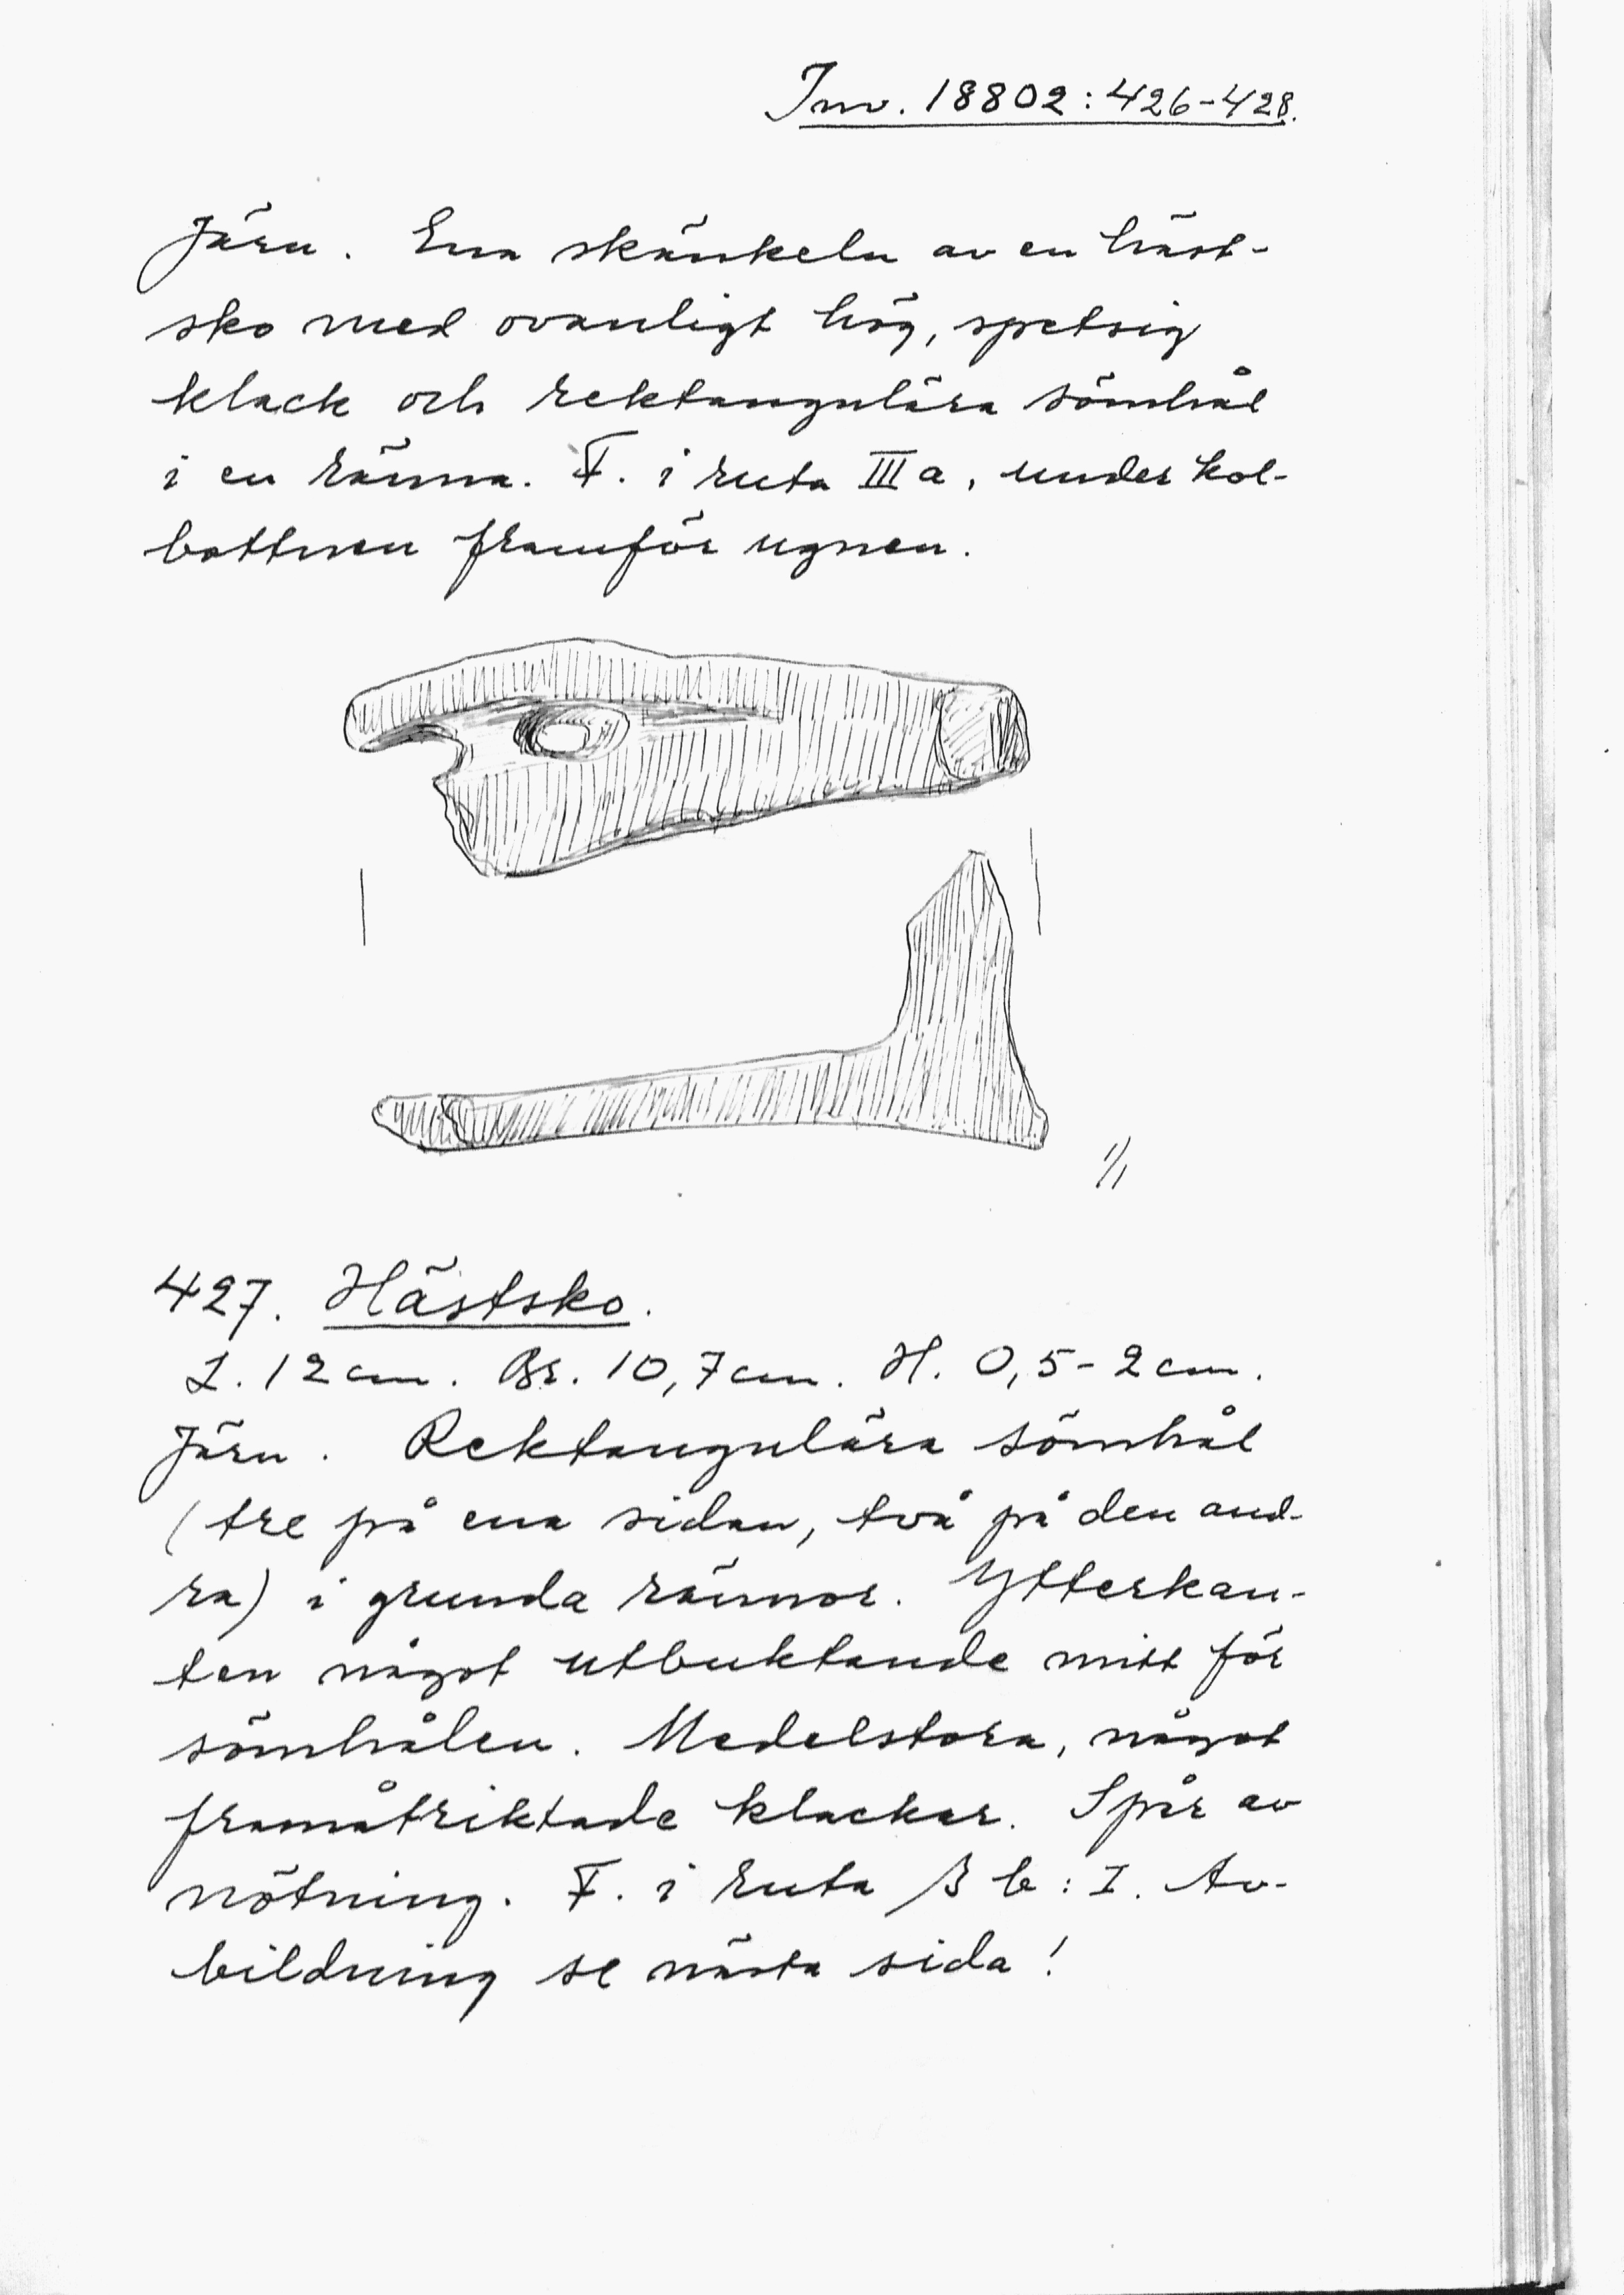 Inv. 18802:426-428.
Järn. Ena skänkeln av en häst-
sko med ovanligt hög, spetsig
klack och rektangulära sömhål
i en ränna. F. i ruta III a, under kol-
bottnen framför ugnen.
1/1
427. Hästsko.
L. 12 cm. Br. 10,7 cm. H. 0,5-2 cm.
Järn. Rektangulära sömhål
(tre på ena sidan, två på den and-
ra) i grunda rännor. Ytterkan-
ten något utbuktande mitt för
sömhålen. Medelstora, något
framåtriktade klackar. Spår av
nötning. F. i ruta B b: I. Av-
bildning se nästa sida!